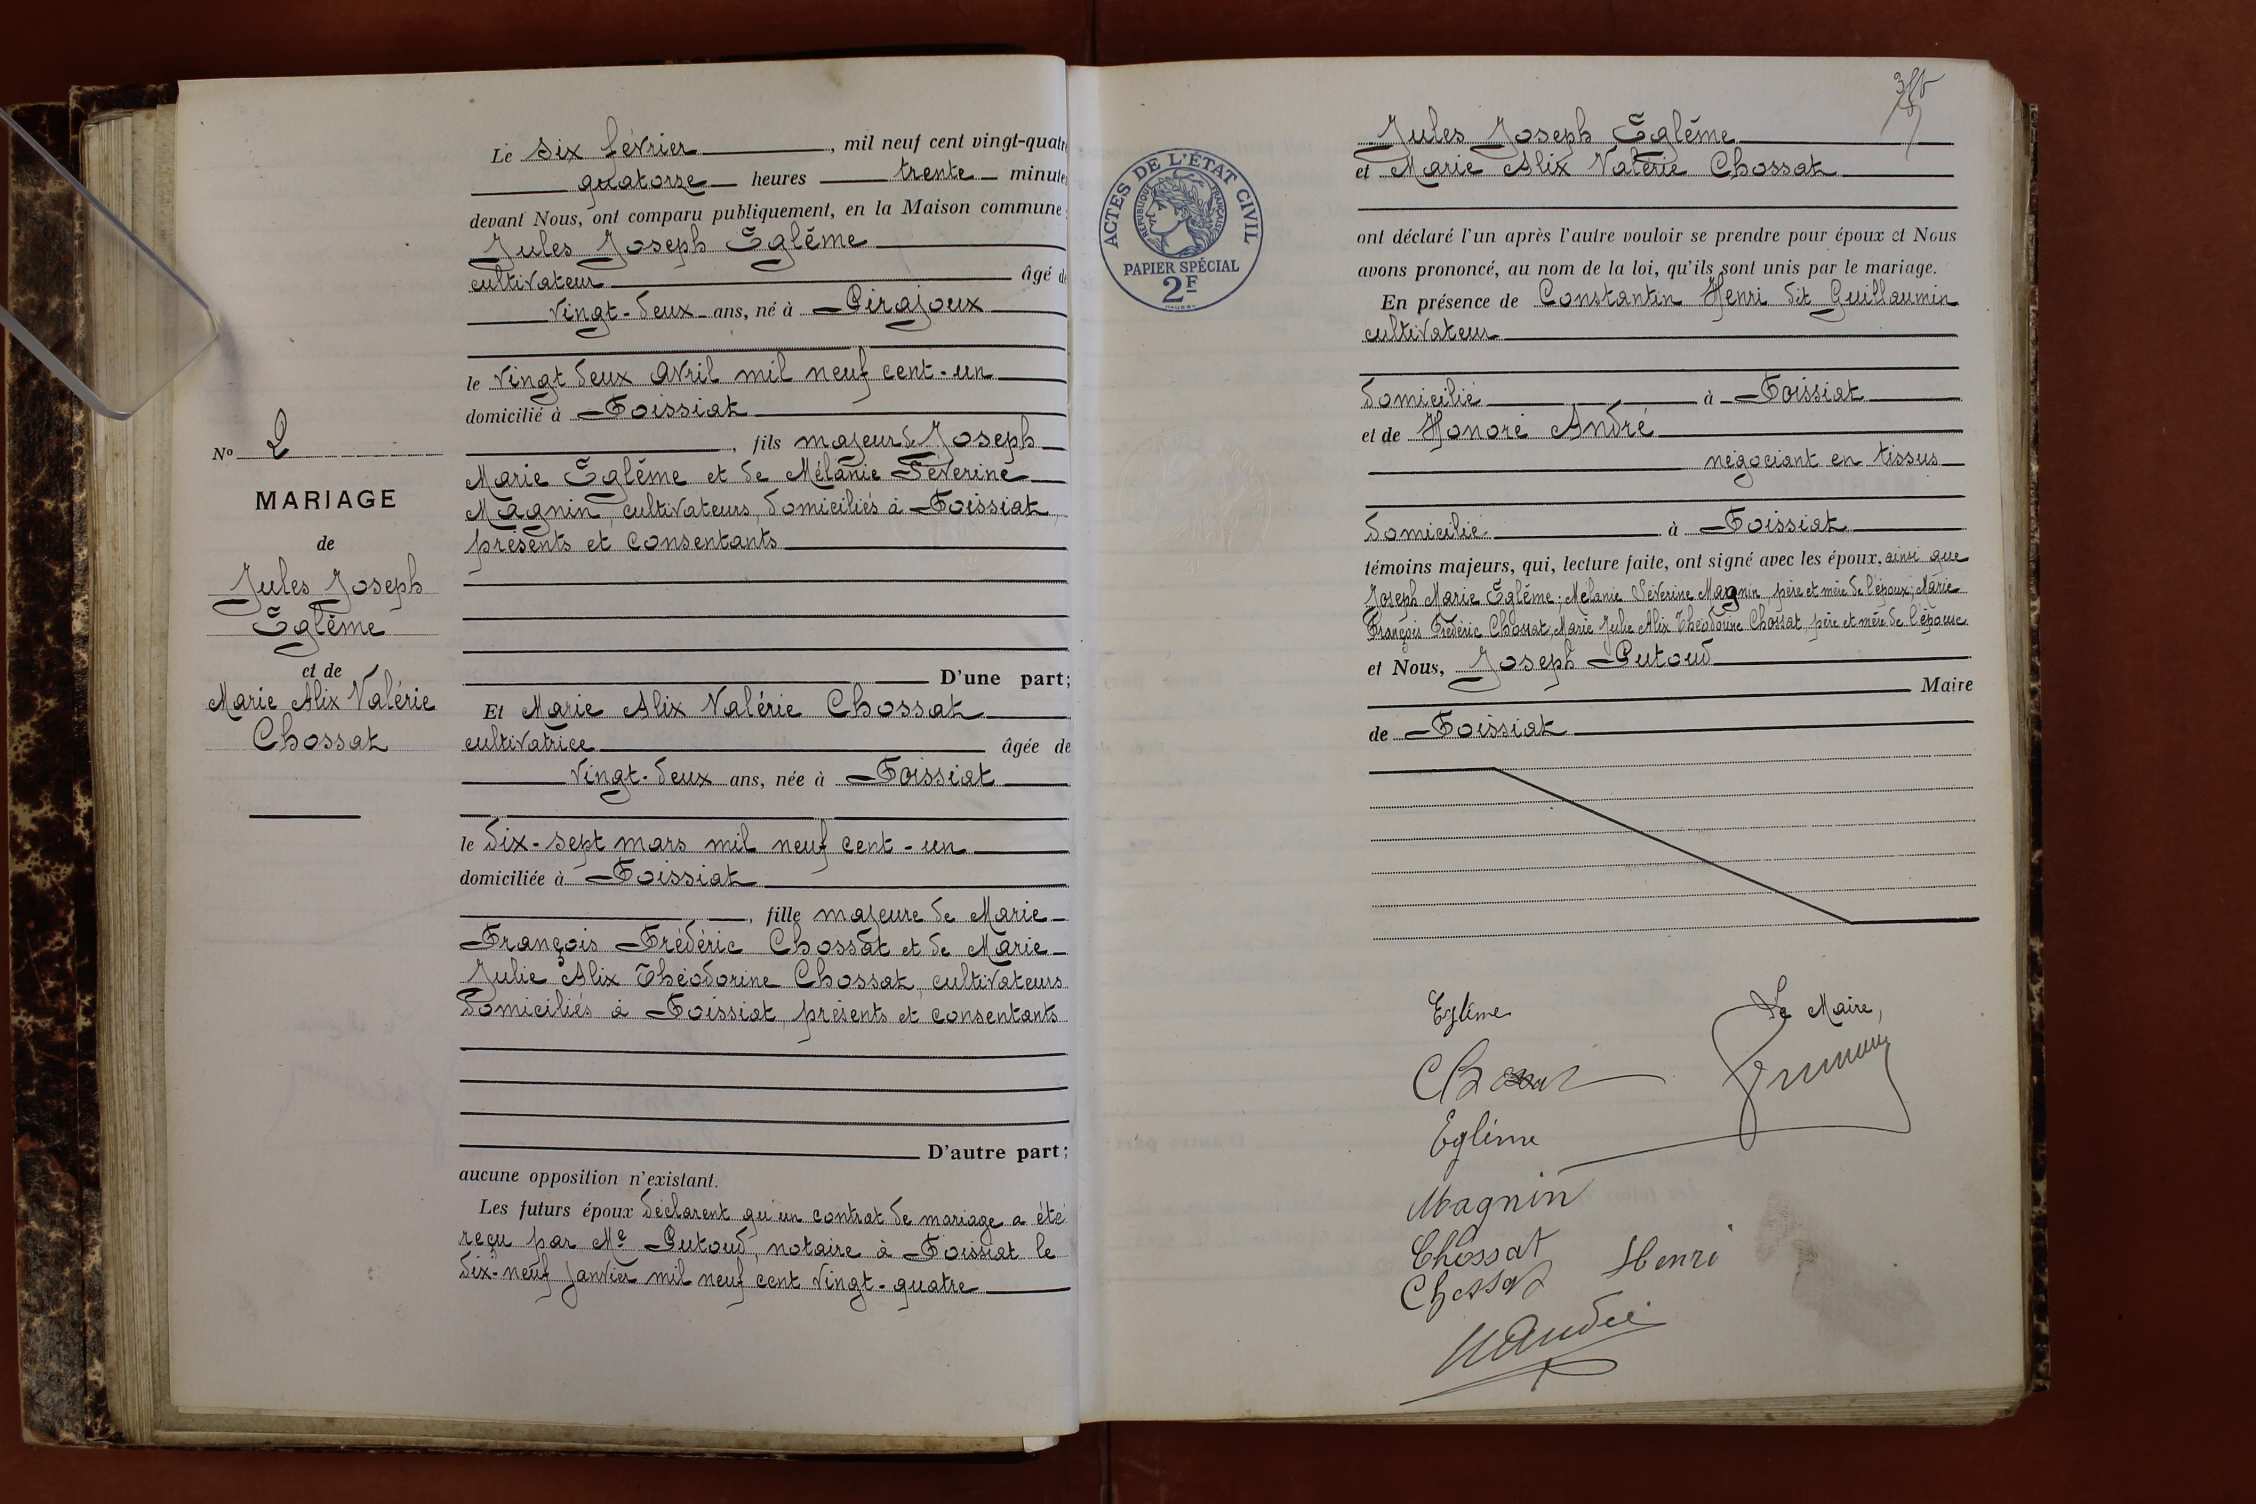 Le six février, mil neuf cent vingt-quatre
quatorze heures trente minutes
devant Nous, ont comparu publiquement, en la Maison commune :
Jules Joseph Eglême
cultivateur âgé de
vingt-deux ans, né à Pirajoux
le vingt deux avril mil neuf cent-un
domicilié à Foissiat
, fils majeur de Joseph
Marie Eglême et de Mélanie Séverine
Magnin, cultivateurs, domiciliés à Foissiat,
présents et consentants
D'une part;
Et Marie Alix Valérie Chossat
cultivatrice âgée de
vingt-deux ans, née à Foissiat
le dix-sept mars mil neuf cent-un
domiciliée à Foissiat
, fille majeure de Marie
François Frédéric Chossat et de Marie
Julie Alix Théodorine Chossat, cultivateurs
domiciliés à Foissiat, présents et consentants
D'autre part;
aucune opposition n'existant.
Les futurs époux déclarent qu'un contrat de mariage a été
reçu par Me Putoud, notaire à Foissiat le
dix-neuf janvier mil neuf cent vingt-quatre
No 2
MARIAGE
de
Jules Joseph
Eglême
et de
Marie Alix Valérie
Chossat
ACTES DE L'ÉTAT CIVIL
RÉPUBLIQUE FRANÇAISE
PAPIER SPÉCIAL
2F
Jules Joseph Eglême
et Marie Alix Valérie Chossat
ont déclaré l'un après l'autre vouloir se prendre pour époux et Nous
avons prononcé, au nom de la loi, qu'ils sont unis par le mariage.
En présence de Constantin Henri dit Guillaumin
cultivateur
domicilié à Foissiat
et de Honoré André
négociant en tissus
domicilié à Foissiat
témoins majeurs, qui, lecture faite, ont signé avec les époux, ainsi que
Joseph Marie Eglême; Mélanie Séverine Magnin, père et mère de l'époux; Marie
François Frédéric Chossat, Marie Julie Alix Théodorine Chossat, père et mère de l'épouse
et Nous, Joseph Putoud
Maire
de Foissiat
Eglême
Le Maire,
Chossat
Eglême
Magnin
Chossat
Chossat Henri
HAndré